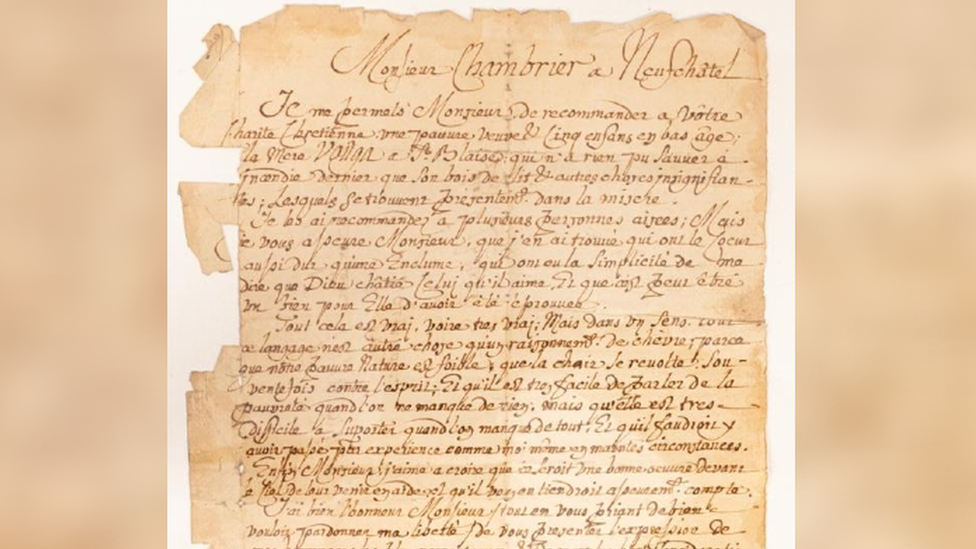 Monsieur Chambrier a Neufchâtel
Je me permets Monsieur, de recommander a vôtre
Charité Chretienne une pauvre veuve & Cinq enfans en bas âge;
la Mere VOUGA a St. Blaise; qui n'a rien pu sauver a
incendie dernier que son bois de lit & autres choses insignifian-
tes; Lesquels se trouvent presentemt. dans la misere.
Je les ai recommandez a plusieurs personnes aisees; Mais
je vous asseure Monsieur, que j'en ai trouvé qui ont le Coeur
aussi dur qu'une Enclume, qui ont eu la simplicité de me
dire que Dieu châtie Celui qu'il aime, Et que c'est peut être
un bien pour Elle d'avoir été éprouvée.
Tout cela est vrai, voire tres vrai; Mais dans un sens, tout
ce langage n'est autre chose qu'un raisonnemt. de chevre; parce
que nôtre pauvre Nature est foible; que la chair se revolte sou-
ventefois contre l'esprit; Et qu'il est tres facile de parler de la
pauvreté quand l'on ne manque de rien, mais qu'elle est tres
difficile à suporter quand l'on manque de tout. Et qu'il faudroit y
avoir passé par experience comme moi même en maintes circonstances.
Enfin Monsieur; j'aime a croire que ce seroit une bonne oeuvre devant
le Ciel de leur venir en aide et qu'il vous en tiendroit asseuremt. compte.
J'ai bien l'honneur Monsieur tout en vous priant de bien
vouloir pardonner ma liberté de vous presenter l'expression de